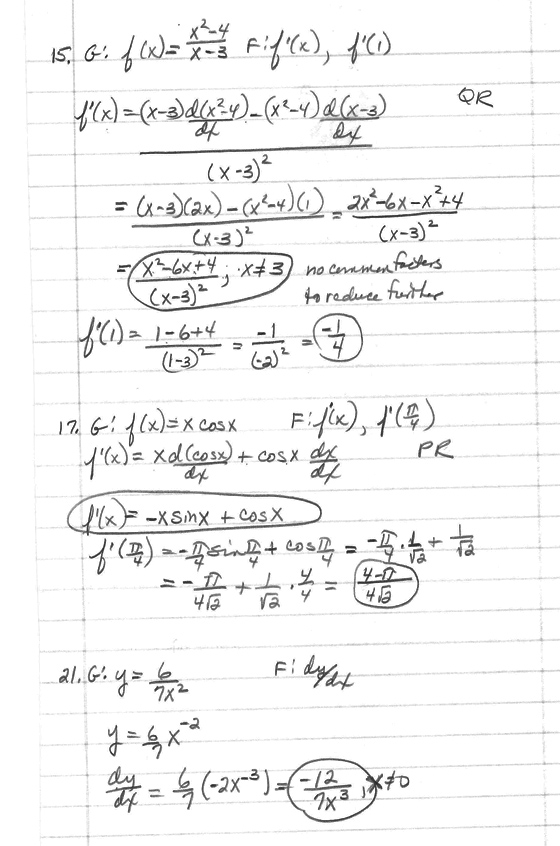 15. G: f(x) = (x²-4)/(x-3) F: f'(x), f'(1)
f'(x) = ((x-3) d(x²-4)/dx - (x²-4) d(x-3)/dx)/(x-3)² QR
= ((x-3)(2x) - (x²-4)(1))/(x-3)² = (2x²-6x-x²+4)/(x-3)²
= (x²-6x+4)/(x-3)² ; x≠3 no common factors
to reduce further
f'(1) = (1-6+4)/(1-3)² = -1/(-2)² = -1/4
17. G: f(x) = x cosx F: f'(x), f'(π/4)
f'(x) = x d(cosx)/dx + cosx dx/dx PR
f'(x) = -x sinx + cosx
f'(π/4) = -π/4 sin π/4 + cos π/4 = -π/4 · 1/√2 + 1/√2
= -π/(4√2) + 1/√2 · 4/4 = (4-π)/(4√2)
21. G: y = 6/(7x²) F: dy/dx
y = 6/7 x⁻²
dy/dx = 6/7 (-2x⁻³) = -12/(7x³), x≠0